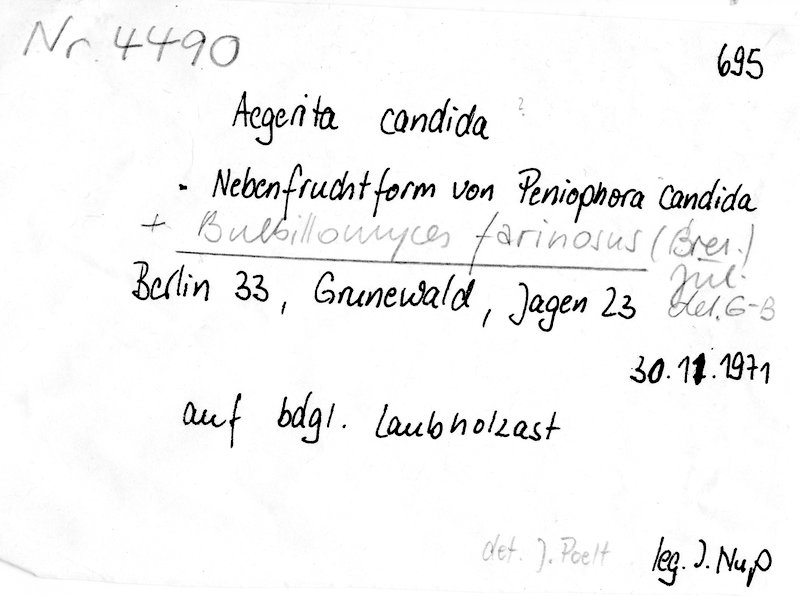 Nr. 4490
695
Aegerita candida ?
- Nebenfruchtform von Peniophora candida
+ Bulbillomyces farinosus (Bres.) Jül.
det. G-B
Berlin 33, Grunewald, Jagen 23
30.11.1971
auf bdgl. Laubholzast
det. J. Poelt
leg. J. Nuß